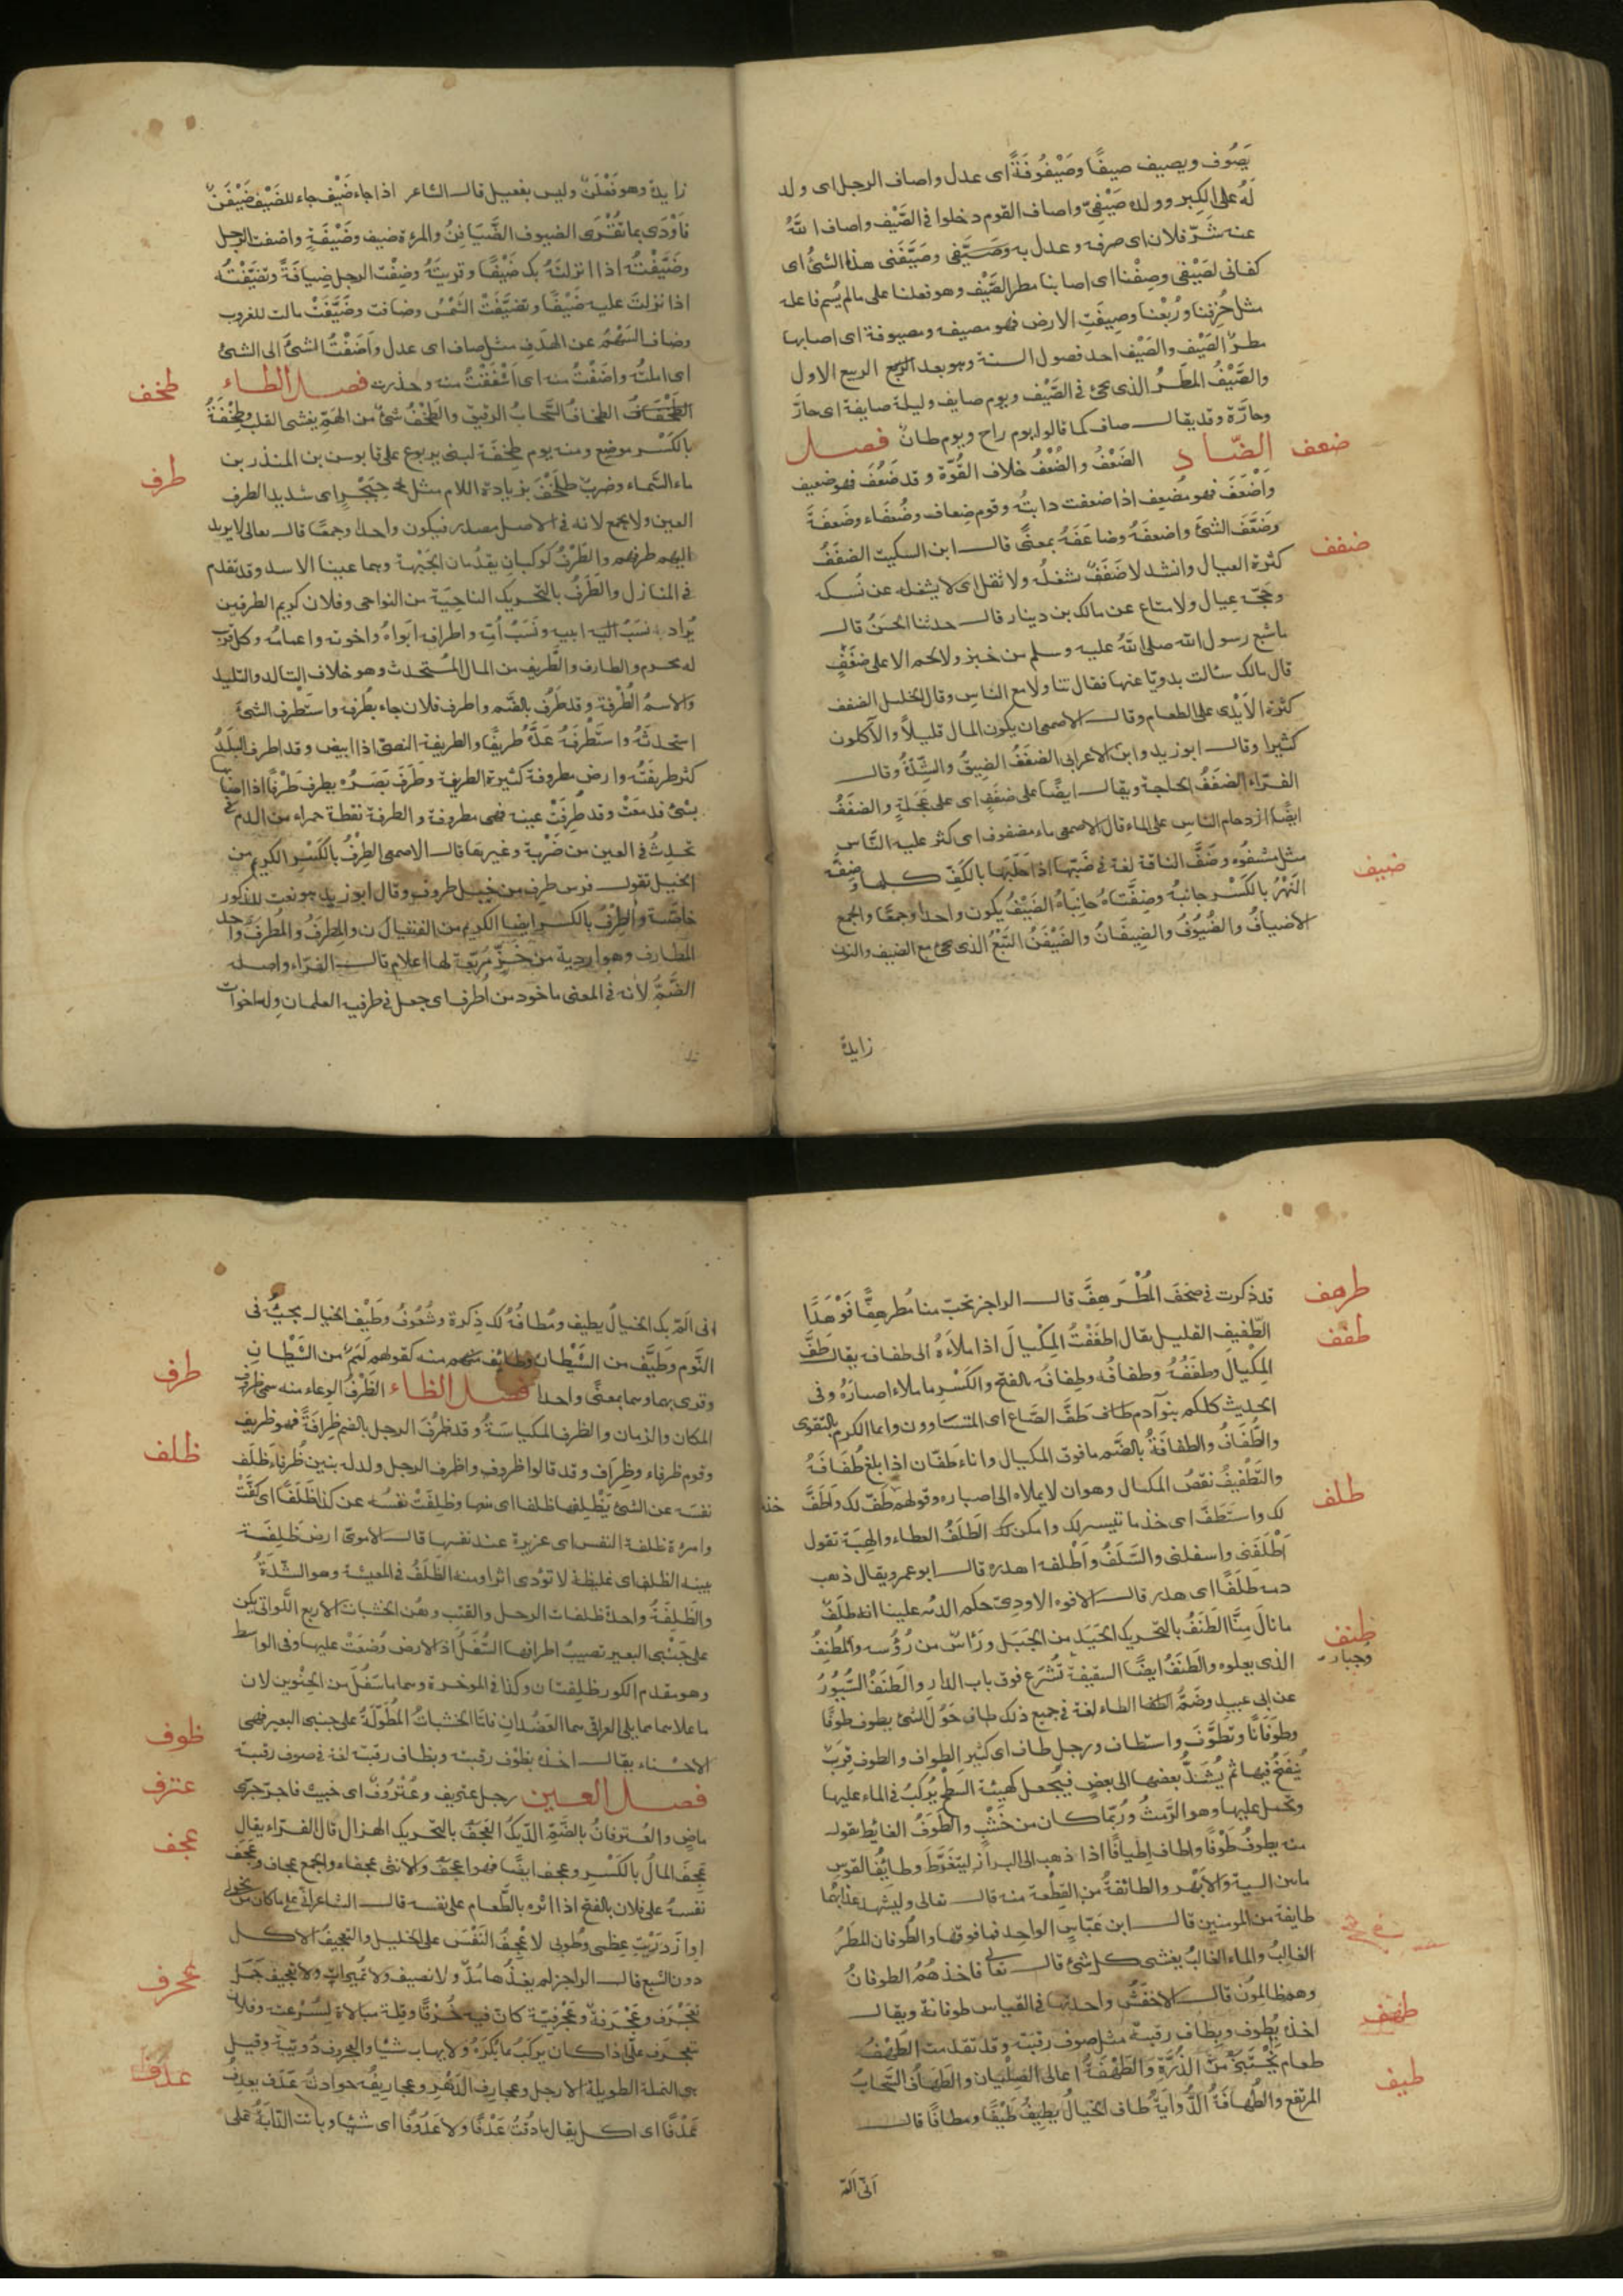 يَصُوف ويصيف صيفًا وصَيْفُوفَةً اى عدل واصاف الرجل اى ولد
لَهُ على الكِبر وولده صَيْفِىّ واصاف القوم دخلوا فى الصَّيْف واصاف اللهُ
عنه شَرّ فلان اى صرفه وعدل به وصَيَّفى وصَيَّفَنى هذا الشئ اى
كفانى لصَيْفى وصِفْنا اى اصابنا مطر الصَّيْف وهو فعلنا على ما لم يُسم فاعله
مثل خُرِفنا ورُبْعنا وصِيفَتِ الارض فهو مصيف ومصيوفة اى اصابها
مطرُ الصَّيْف والصَّيْف احد فصول السنة وهو بعد الربيع الاول
والصَّيْفُ المَطَرُ الذى يجئ فى الصَّيْف ويوم صايف وليلة صايفة اى حارّ
وحارّة وقد يقال صاف كما قالوا يوم راح ويوم طان فصل
ضعف
الضّاد الضَعْفُ والضُعْفُ خلاف القُوّة وقد ضَعُفَ فهو ضعيف
واَضْعَفَ فهو مُضعِف اذا ضعفت دابتُه وقوم ضِعاف وضُعَفاء وضَعَفَةً
وضَعَّفَ الشئَ واضعفَهُ وضاعَفَهُ بمعنًى قال ابن السكيت الضفَفُ
ضفف
كثرة العيال وانشد لا ضَفَفٌ شغلُه ولا ثقل اى لا يشغله عن نُسكه
وحَجّه عِيال ولا متاع عن مالك بن دينار قال حدثنا الحَسَنُ قال
ما شبع رسول الله صلى اللهُ عليه وسلم من خبز ولا لحم الا على ضفَفٍ
قال مالك سئالت بدويّا عنها فقال تناولا مع الناس وقال الخليل الضفف
كثرة الاَيْدى على الطعام وقال الاصمعى ان يكون المال قليلاً والآكلون
كثيرا وقال ابو زيد وابن الاعرابى الضفَفُ الضِيقُ والشِدّةُ وقال
الفَرّاء الضفَفُ الحاجة ويقال ايضًا على ضفَفٍ اى على عَجَلةٍ والضفَفُ
ايضًا ازدحام الناس على الماء قال الاصمعى ماء مضفوف اى كثر عليه النّاس
مثل مشفُوه وضَفَّ الناقة لغة فى ضَبّها اذا حَلَبَها بالكَفّ كلها وضِفّة
ضيف
النَهْرُ بالكَسْر جانبهُ وضِفَّتاهُ جانِباهُ الضَيْفُ يكون واحدا وجمعًا والجمع
الاضيافُ والضُيُوفُ والضِيفَانُ والضَيْفَنُ التَبْعُ الذى يجئ مع الضيف والنون
زايدة
زايدة وهو فَعْلَنٌ وليس بفَعيل قال الشاعر اذا جاء ضَيْف جاء للضَيْف ضَيْفَنٌ
فاَوْدَى بما تُقْرَى الضيوف الضَّيَافِنُ والمرءة ضيف وضَيْفَةِ واضفت الرجل
وضَيَّفْتُه اذا انزلتَهُ بك ضَيْفًا وقريتَهُ وضِفْت الرجل ضِيافَةً وتضَيَّفْتُه
اذا نزلتَ عليه ضَيْفًا وتضَيَّفَت الشَمْسُ وضافت وضَيَّفَتْ مالت للغروب
وضاف السَهْمُ عن الهَدَفِ مثل صاف اى عدل واَضَفْتُ الشئَ الى الشئ
اى املته واضَفْتُ منه اى اَشْفَقْتُ منه وحذرت فصل الطاء
طخف
الطخافُ السَّحابُ الرقيق والطَخْفُ شئ من الهَمّ يغشى القلب وطِخْفَةُ
بالكَسْر موضع ومنه يوم طِخفَة لبنى يربوع على قابوس بن المنذر بن
ماء السَّماء وضربٌ طِلَخْفٌ بزيادة اللام مثل حِبَجْرٍ اى شديد الطرف
طرف
العين ولا يجمع لانه فى الاصل مصدر فيكون واحدا وجمعًا قال تعالى لا يرتد
اليهم طرفهم والطَرْفُ كوكبان يقدُمان الجَبْهة وهما عينا الاسد وقد تقدم
فى المنازل والطَرَفُ بالتحريك الناحِيَة من النواحى وفلان كريم الطرفين
يُراد به نسَبُ ابيه ونَسَبُ اُمّه واطرافه ابَواهُ واخوته واعمامُه وكل قريب
له محرم والطارف والطَريف من المال المُستَحدث وهو خلاف التالد والتليد
والاسمُ الطُرْفة وقد طَرُف بالضَّم واطرف فلان جاء بطُرفة واستطرف الشئَ
استحدثَهُ واستطرفَهُ عَدَّهُ طريفًا والطريفة النصىّ اذا ابيض وقد اطرف البلَدُ
كثر طريفَتُه وارض مطروفة كثيرة الطريفة وطَرَفَ بَصَرُه يطرِف طَرْفًا اذا اصابها
بشئ فدمَعَتْ وقد طُرِفَتْ عينه فهى مطروفة والطرفة نقطة حمراء من الدم
تحدِث فى العين من ضَرْبة وغيرها قال الاصمعى الطِرْفُ بالكَسْر الكريم من
الخيل تقول فرس طِرف من خيل طروف وقال ابو زيد هو نعت للذكور
خاصّة والطِرْفُ بالكسر ايضا الكريم من الفتيان والمِطرَفُ والمُطرَفُ واحد
المطارف وهو اردية من خَزّ مُرَبّعة لها اعلام قال الفرّاء واصله
الضَّمُّ لاَنه فى المعنى ماخوذ من اُطرِف اى جعل فى طرفيه العلمان وله اخوات
طرهف
قد ذكرت فى صحف المُطْرَهِفّ قال الراجز تحبّ منا مُطرهِفًّا فَوْهَدًا
طفف
الطفيف القليل يقال اطفَفْتُ المِكْيالَ اذا ملاَءهُ الى طفافه يقال طَفّ
المِكْيال وطفَفُهُ وطفافُه وطِفافُه بالفتح والكَسْر ما ملاء اصبارَهُ وفى
الحديث كلكم بنو آدم طفّ الصَّاع اى المتَساوون وانما الكرم بالتقوى
والطُفَافُ والطفافَةُ بالضَّم ما فوق المكيال واناء طَفّان اذا بلغ طُفَافَهُ
والتَطْفيفُ نقصُ المكيال وهو ان لا يملاه الى اصباره وقولهم طَفّ لك واَطَفَّ
طلف
لك واستَطَفّ اى خذ ما تيسر لك وامكن لك الطَلَفُ العطاء والهِبَة تقول
اَطْلَفَنى واسلفنى والسَلَفُ واَطْلفه اهدره قال ابو عمر ويقال ذهب
دمه طَلَفًا اى هدر قال الافوه الاودى حكم الدهر علينا انه طلَفٌ
ما نالَ مِنّا الطَنَفُ بالتحريك الحَيْد من الجَبَل ورَاْسٌ من رُؤسه والمُطنِفُ
طنف
الذى يعلوه والطَنَفُ ايضًا السقيفة تُشرَع فوق باب الدار والطَنَفُ السُيُورُ
عن ابى عبيد وضَمُّ الطاء لغة فى جميع ذلك طاف حَوْل الشئ يطوف طوفًا
وطَوَفانًا وتطوَّفَ واستطاف ورجل طاف اى كثير الطواف والطوف قِرَبٌ
يُنفَخُ فيها ثم يُشَدُّ بعضها الى بعضٍ فيُجعل كهيئة السطح يُركبُ فى الماء عليها
ويحمل عليها وهو الرَمثُ ورُبّما كان من خَشَبٍ والطَوْفُ الغايط تقول
منه يطوفُ طَوْفًا واطاف اطيافًا اذا ذهب الى البراز ليتغوّط وطايفُ القوس
ما بين السية والاَبْهَر والطائفةُ من القِطْعة منه قال تعالى وليَشهد عذابهما
طايفة من المومنين قال ابن عَبّاس الواحد فما فوقها والطوفان المطَرُ
الغالبُ والماء الغالبُ يغشى كل شئ قال تعالى فاخذهُمُ الطوفانُ
وهم ظالمون قال الاَخفَشُ واحدتُها فى القياس طوفانة ويقال
اخذ بطوف وبطاف رقبته مثل صوف رقبَته وقد تقدمت الطَهْفُ
طهف
طعام يُخْتَبَزُ مِنَ الذُرَة والطَهْفَةُ اعالى الصِلّيان والطَهَافُ السَّحابُ
طيف
المرتفع والطُهافَةُ الذُوايَةُ طاف الخيالُ يطِيفُ طَيْفًا ومطافًا قال
اَنّى اَلَمّ
انى اَلَمّ بك الخيالُ يطيف ومُطافُهُ لك ذِكرة وشُعُوفُ وطَيْف الخيال مجيئه فى
النَّوم وطَيْف من الشَيْطان وطايف منه كقولهم لَمَم من الشَيْطان
وقرى بهما وهما بمعنًى واحد فصل الظاء الظَرْفُ الوعاء منه سمى ظرف
ظرف
المكان والزمان والظرف الكياسَةُ وقد ظرُف الرجل بالضم ظِرافَةً فهو ظريف
وقوم ظرفاء وظِرَاف وقد قالوا ظروف واظرف الرجل ولد له بنين ظُرفاء ظلَف
ظلف
نفسَه عن الشئ يَظْلِفها ظلفا اى منعها وظلِفَتْ نفسُه عن كذا ظَلَفًا اى كفّتْ
وامرءة ظلفة النفس اى عزيزة عند نفسها قال الاموىّ ارض ظَلِفَة
بينه الظلف اى غليظة لا تؤدى اثرا ومنه الظَلَفُ فى المعيشة وهو الشِدّةُ
والظَلِفَةُ واحدة ظلفات الرحل والقَتَب وهُن الخشبات الاربع اللَواتى يكن
على جَنْبى البعير تصيبُ اطرافها السُفْلَى الارض اذا وُضعَتْ عليها وفى الواسط
وهو مقدم الكور ظلِفتان وكذا فى الموخرة وهما ما سَفُلَ من الحِنْوين لان
ما علاهما مما يلى العراقى هما العَضُدانِ فامّا الخشبات المُطَوّلَة على جنبى البعير فهى
الاحناء يقال اخذ بظوف رقبته وبظاف رقبته لغة فى صوف رقبته
ظوف
فصل العين رجل عتريف وعُتْرُوفٌ اى خبيث فاجر جَرّى
عترف
ماضٍ والعُترفانُ بالضَّمّ الدّيكُ العَجَفُ بالتحريك الهزال قال الفرّاء يقال
عجف
عَجِفَ المالُ بالكَسْر وعجف ايضًا فهو اعجف والانثى عجفاء والجمع عجاف وعَجَفَ
نفسَهُ على فلان بالفتح اذا اثره بالطعام على نفسه قال الشاعر
لاعْجِفُ النَفْسَ على الخليل والتعجيفُ الاكل
دون الشبع قال الراجز لم يغذُها مُدٌّ ولا نصيف ولا تُميرات ولا تعجيف جَمَل
عجرف
تعَجْرَف وعَجْرَفة وعَجْرفيّة كان فيه خُرْقًا وقلة مبالاة لِسُرعته وفلان
يتعجرف علىّ اذا كان يركَبُ بما يكْرَهُ ولا يهاب شيئا والعجروف دُويبّة وقيل
هى النملة الطويلة الارجل وعجارف الدَهْر وعجاريفُه حوادثُه عَذَف يعذف
عدف
عَذْفًا اى اكل يقال ما ذُقتُ عَذْفًا ولا عَذُوفًا اى شيئا وباتت الدّابةُ على